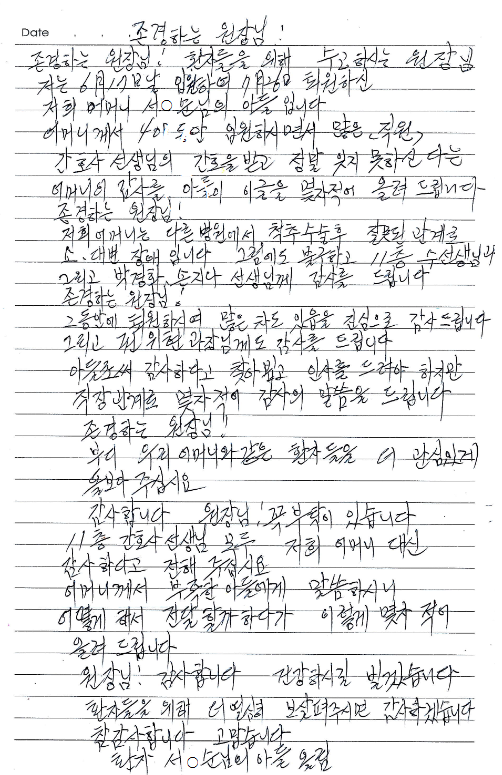 존경하는 원장님!
Date
존경하는 원장님! 환자들을 위해 수고하시는 원장님
저는 6月17日날 입원하여 7月26日 퇴원하신
저희 어머니 서○순님의 아들 입니다
어머니께서 40여日 동안 입원하시면서 많은 직원,
간호사 선생님의 간호을 받고 정말 잊지 못하신 다는
어머니의 감사를, 아들의 이글을 몇자적어 올려 드립니다
존경하는 원장님!
저희어머니는 다른병원에서 척추수술후 잘못된 관계로
소.대변 장애 입니다 그럼에도 불구하고 11층 수선생님과
그리고 박경화. 송지나 선생님께 감사를 드립니다
존경하는 원장님!
그동안에 퇴원하시며 많은 차도 있음을 진심으로 감사드립니다
그리고 편위현 과장님께도 감사를 드립니다
아들로써 감사하다고 찾아뵙고 인사를 드려야 하지만
직장관계로 몇자적어 감사의 말씀을 드립니다
존경하는 원장님!!
부디 우리어머니와같은 환자들을 더 관심있게
돌보다 주십시요
감사합니다 원장님! 꼭부탁이 있습니다
11층 간호사선생님 모두 저희 어머니 대신
감사하다고 전해 주십시요
어머니께서 부족한 아들에게 말씀하시니
어떻게 해서 전달할까하다가 이렇게 몇자 적어
올려 드립니다
원장님! 감사합니다 건강하시길 빌겠습니다
환자들을 위해 더열심히 보살펴주시면 감사하겠습니다
참감사합니다 고맙습니다
환자 서○순님의 아들 올림